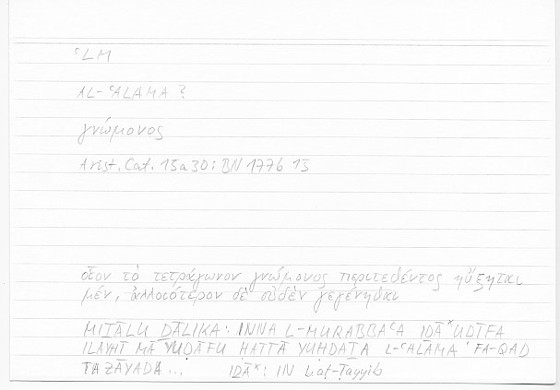 ʿLM
AL-ʿALAMA ?
γνώμονος
Arist. Cat. 15a30 : BN 1776 13
οἷον τὸ τετράγωνον γνώμονος περιτεθέντος ηὔξηται
μέν, ἀλλοιότερον δὲ οὐδὲν γεγένηται
MIṮĀLU ḎĀLIKA : INNA L-MURABBAʿA IḎĀ* UḌĪFA
ILAYHI MĀ YUḌĀFU ḤATTĀ YUḤDAṮA L-ʿALĀMA FA-QAD
TAZĀYADA... IḎĀ* : IN